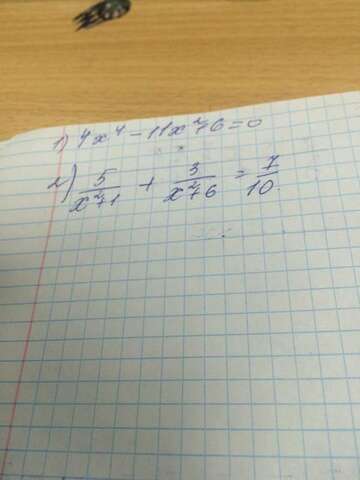 1) 4x⁴ - 11x² + 6 = 0
2) 5/(x²+1) + 3/(x²+6) = 7/10